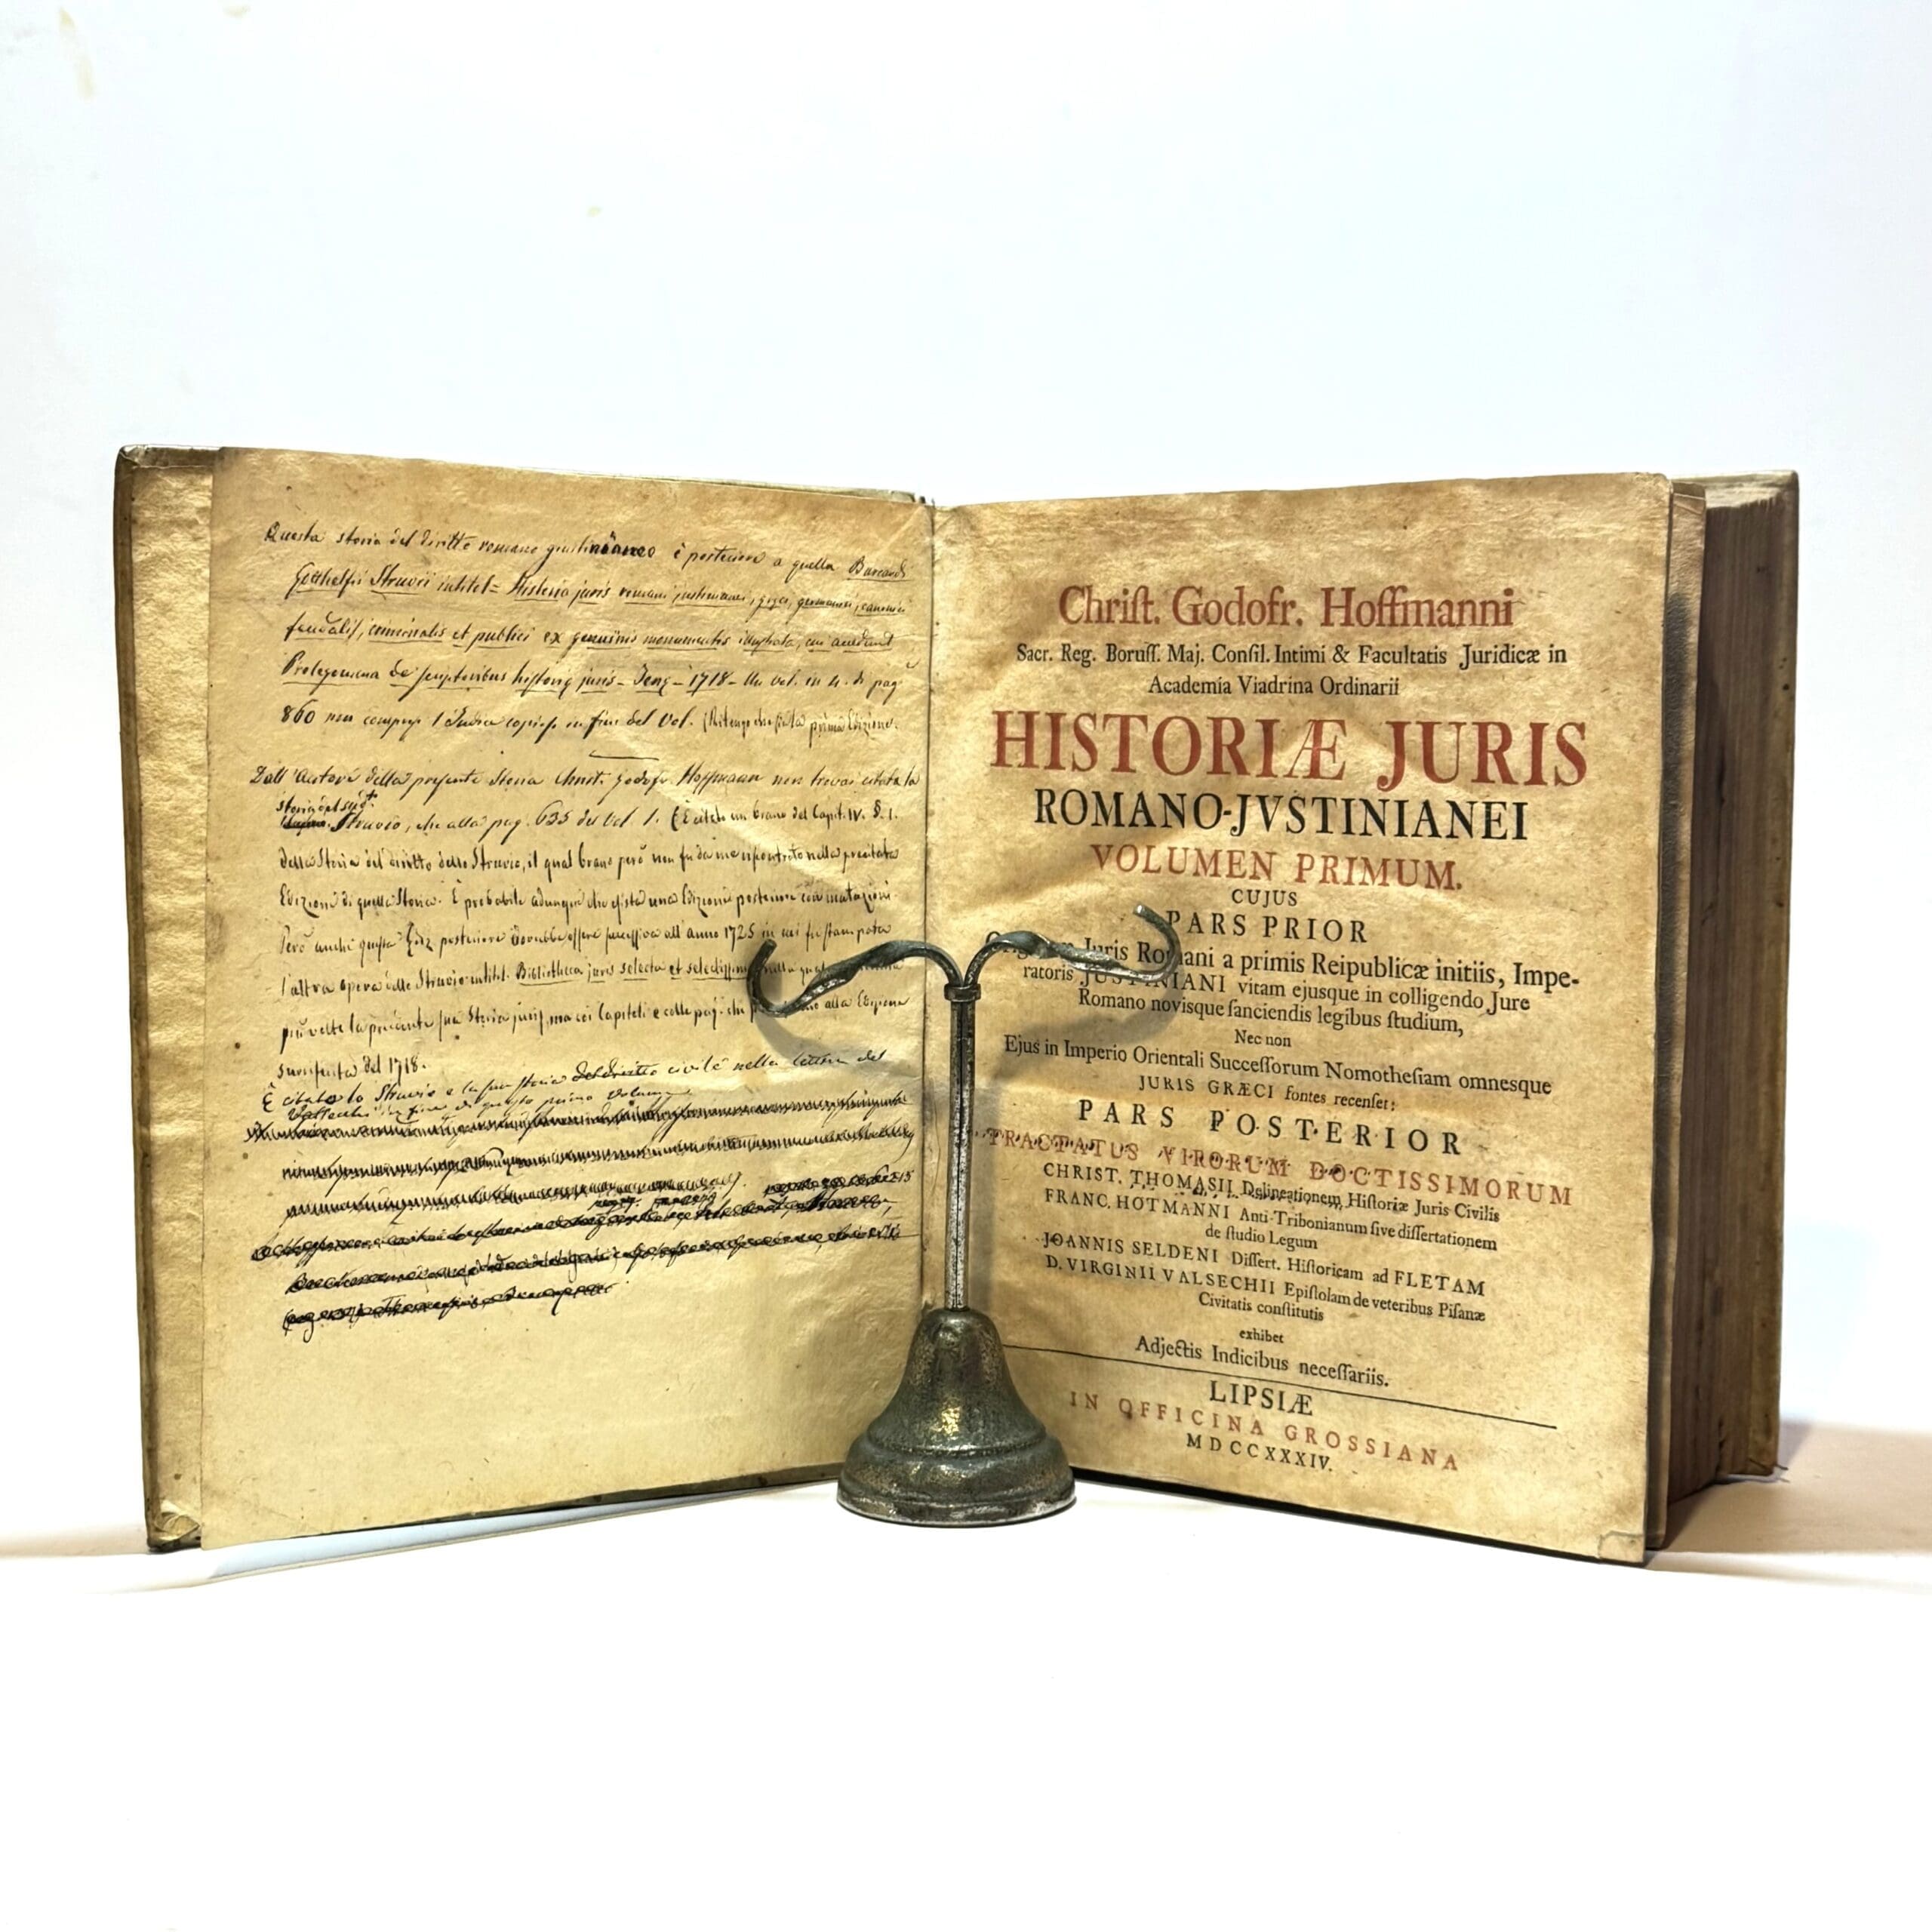 Questa storia del diritto romano giustinianeo è posteriore a quella Burcardi
Gotthelfii Struvii intitol= Historia juris romani justinianei, graeci, germanici, canonici
feudalis, criminalis et publici ex genuinis monumentis illustrata, cui accedunt
Prolegomena de scriptoribus historiae juris - Jenae - 1718 - Un vol. in 4. di pag
860 non compreso l'Indice copioso in fine del Vol. (Ritengo che sia la prima Edizione.
Dall'Autore della presente Storia Christ. Godofr. Hoffmann non trovai citata la
storia del sigr.
Struvio, che alla pag. 635 del Vol. 1. (È citato un brano del Capit. IV. §. 1.
della Storia del diritto dello Struvio, il qual brano però non fu da me riscontrato nella precitata
Edizione di quella Storia. È probabile adunque che esista una Edizione posteriore con mutazioni.
Però anche questa Ediz. posteriore dovrebbe essere successiva all'anno 1725 in cui fu stampata
l'altra opera dello Struvio intitol. Bibliotheca juris selecta et selectissima nella
più volte la precitata sua Storia juris, ma coi Capitoli e colle pag. che alla Edizione
surriferita del 1718.
È citato lo Struvio e la sua storia del diritto civile nella lettera del
Valsecchi in fine di questo primo volume
Chriſt. Godofr. Hoffmanni
Sacr. Reg. Boruſſ. Maj. Conſil. Intimi & Facultatis Juridicæ in
Academia Viadrina Ordinarii
HISTORIÆ JURIS
ROMANO-JVSTINIANEI
VOLUMEN PRIMUM.
CUJUS
PARS PRIOR
Juris Romani a primis Reipublicæ initiis, Impe-
ratoris JUSTINIANI vitam ejusque in colligendo Jure
Romano novisque ſanciendis legibus ſtudium,
Nec non
Ejus in Imperio Orientali Succeſſorum Nomotheſiam omnesque
JURIS GRÆCI fontes recenſet:
PARS POSTERIOR
TRACTATUS VIRORUM DOCTISSIMORUM
CHRIST. THOMASII Delineationem Hiſtoriæ Juris Civilis
FRANC. HOTMANNI Anti-Tribonianum ſive diſſertationem
de ſtudio Legum
JOANNIS SELDENI Diſſert. Hiſtoricam ad FLETAM
D. VIRGINII VALSECHII Epiſtolam de veteribus Piſanæ
Civitatis conſtitutis
exhibet
Adjectis Indicibus neceſſariis.
LIPSIÆ
IN OFFICINA GROSSIANA
MDCCXXXIV.